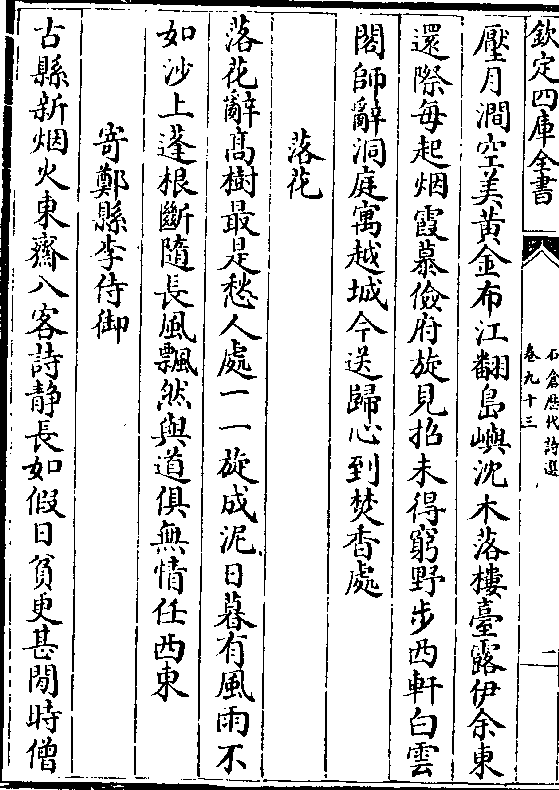 欽定四庫全書
石倉歴代詩選
卷九十三
二
壓月澗空美黄金布江翻島嶼沈木落樓臺露伊余東
還際每起烟霞慕儉府旋見招未得窮野步西軒白雲
閣師辭洞庭寓越城今送歸心到焚香處
落花
落花辭髙樹最是愁人處一一旋成泥日暮有風雨不
如沙上蓬根斷隨長風飄然與道俱無情任西東
寄鄭縣李侍御
古縣新烟火東齋入客詩静長如假日貧更甚閒時僧